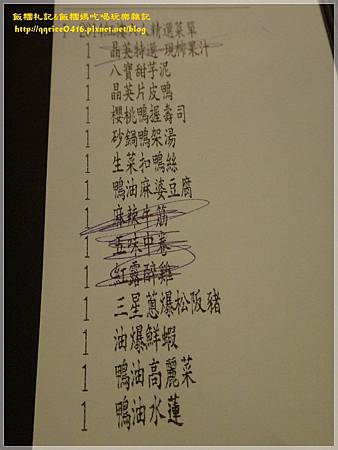 飯糰札記&飯糰媽吃喝玩樂雜記
http://qqrice0416.pixnet.net/blog
精選菜單
1 晶英特選-現榨果汁
1 八寶甜芋泥
1 晶英片皮鴨
1 櫻桃鴨握壽司
1 砂鍋鴨架湯
1 生菜扣鴨絲
1 鴨油麻婆豆腐
1 麻辣牛筋
1 五味中卷
1 紅露醉雞
1 三星蔥爆松阪豬
1 油爆鮮蝦
1 鴨油高麗菜
1 鴨油水蓮